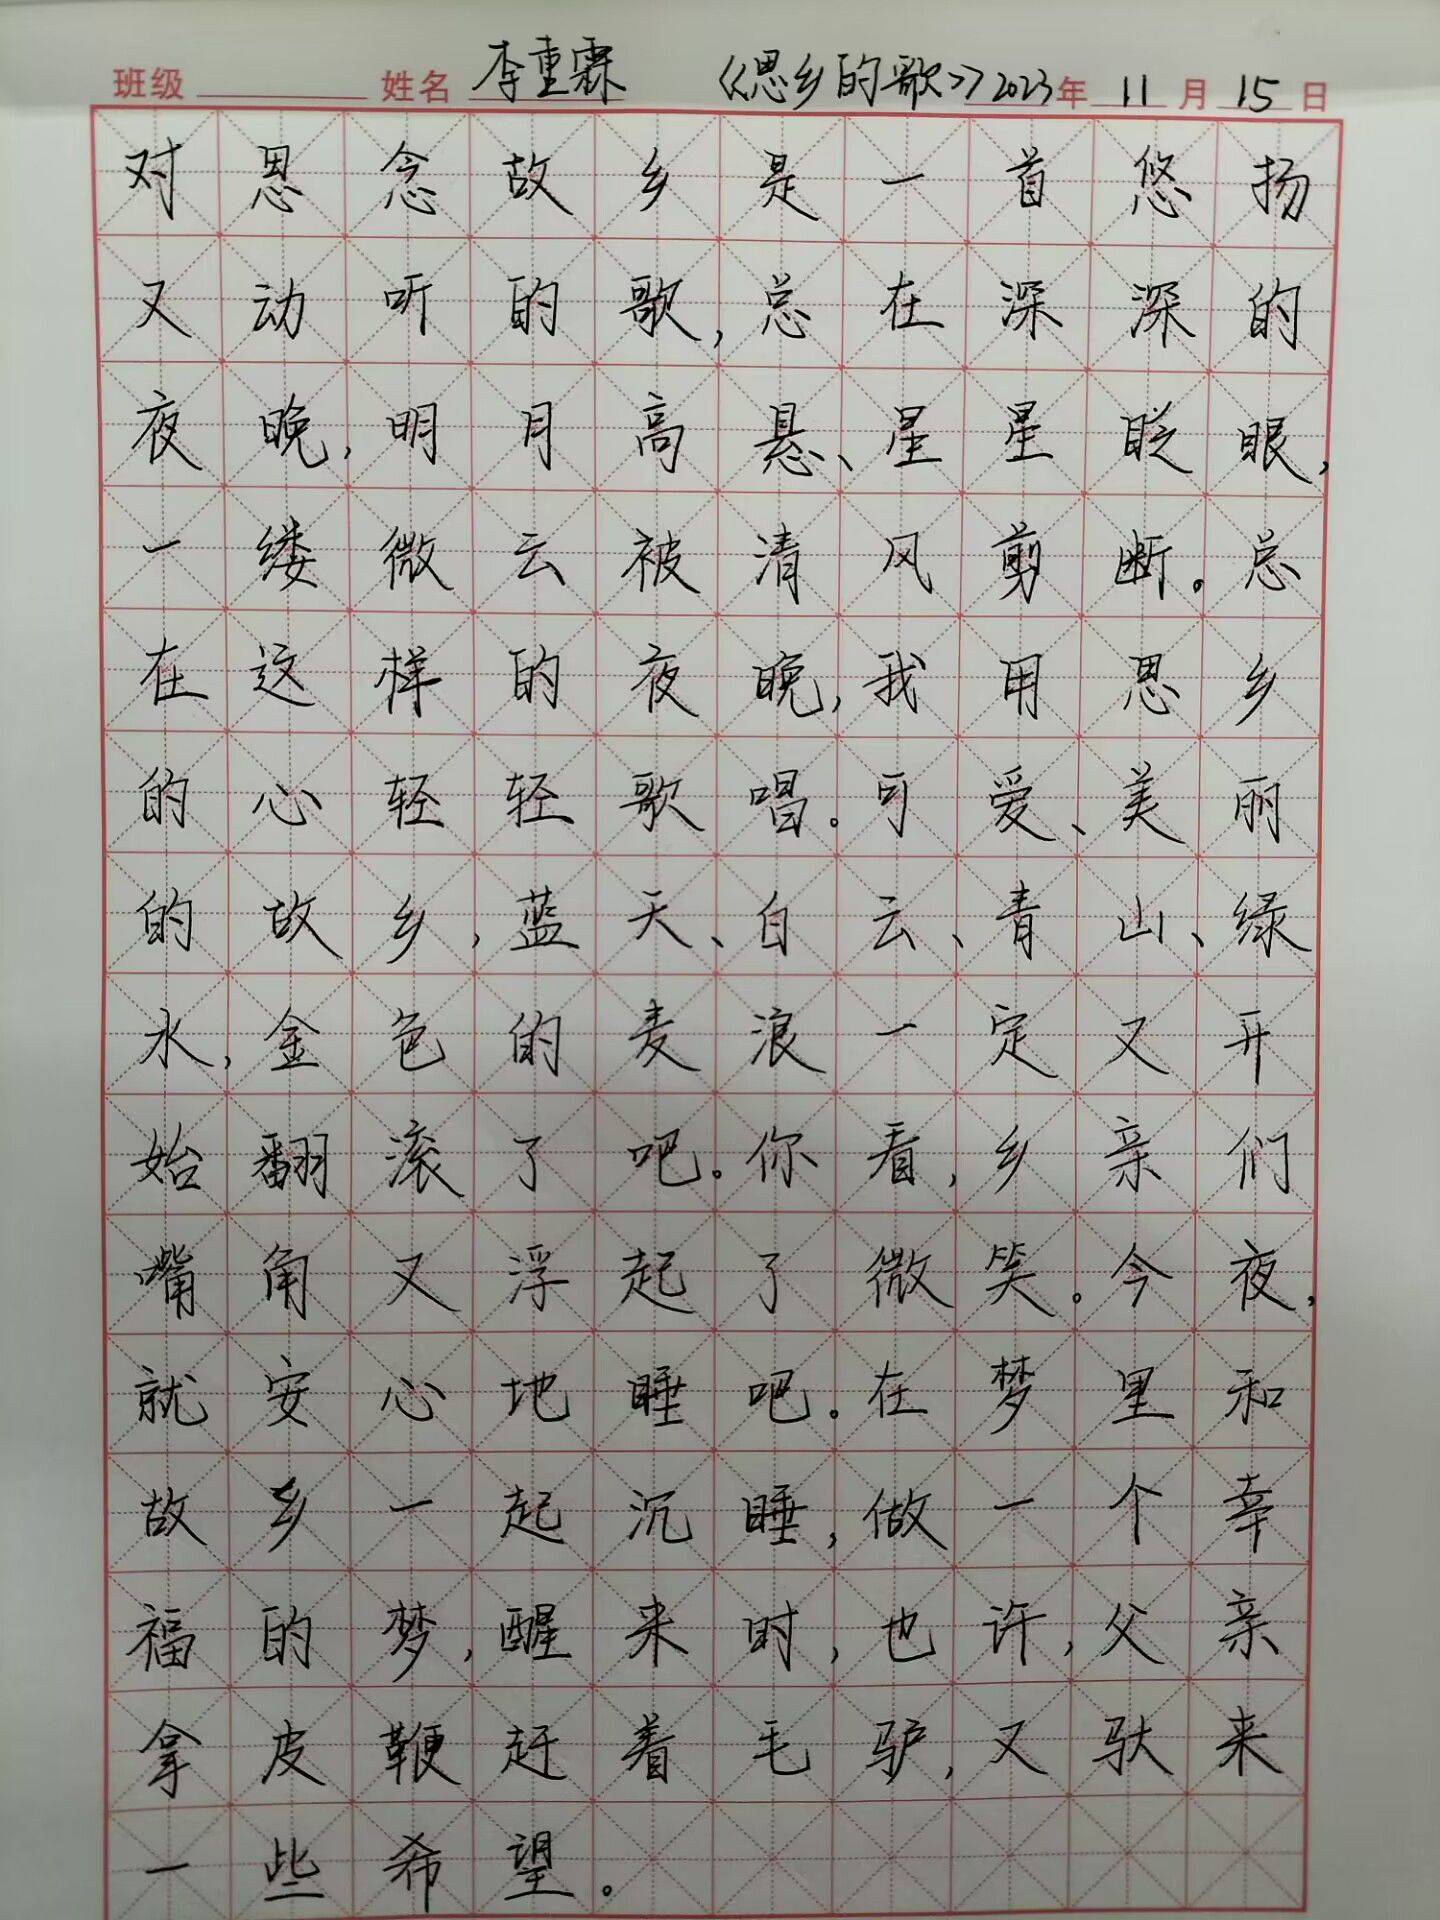 班级 姓名 李重霖 《思乡的歌》2023年 11月 15日
对思念故乡是一首悠扬
又动听的歌,总在深深的
夜晚,明月高悬、星星眨眼,
一缕微云被清风剪断。总
在这样的夜晚,我用思乡
的心轻轻歌唱。可爱、美丽
的故乡,蓝天、白云、青山、绿
水,金色的麦浪一定又开
始翻滚了吧。你看,乡亲们
嘴角又浮起了微笑。今夜,
就安心地睡吧。在梦里和
故乡一起沉睡,做一个幸
福的梦,醒来时,也许,父亲
拿皮鞭赶着毛驴,又驮来
一些希望。